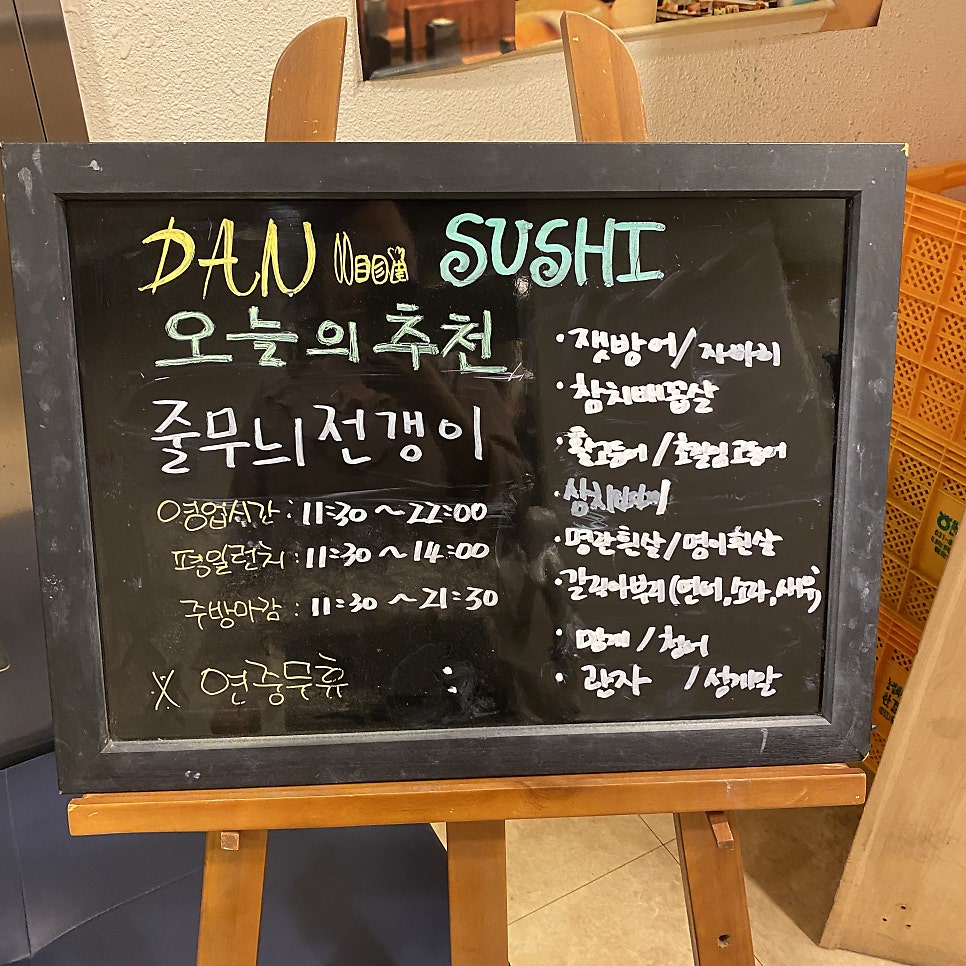 DAN SUSHI
오늘의 추천
줄무늬전갱이
영업시간 : 11:30 ~ 22:00
평일런치 : 11:30 ~ 14:00
주방마감 : 11:30 ~ 21:30
※ 연중무휴
· 잿방어 / 자바리
· 참치배꼽살
· 활고등어 / 초절임고등어
· 참치
· 명란흰살 / 명이흰살
· 갈릭아부리 (연어, 소라, 새우)
· 멍게 / 청어
· 관자 / 성게알